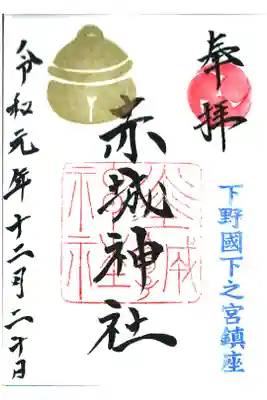 奉拝
下野國下之宮鎮座
赤城神社
令和元年十二月二十日